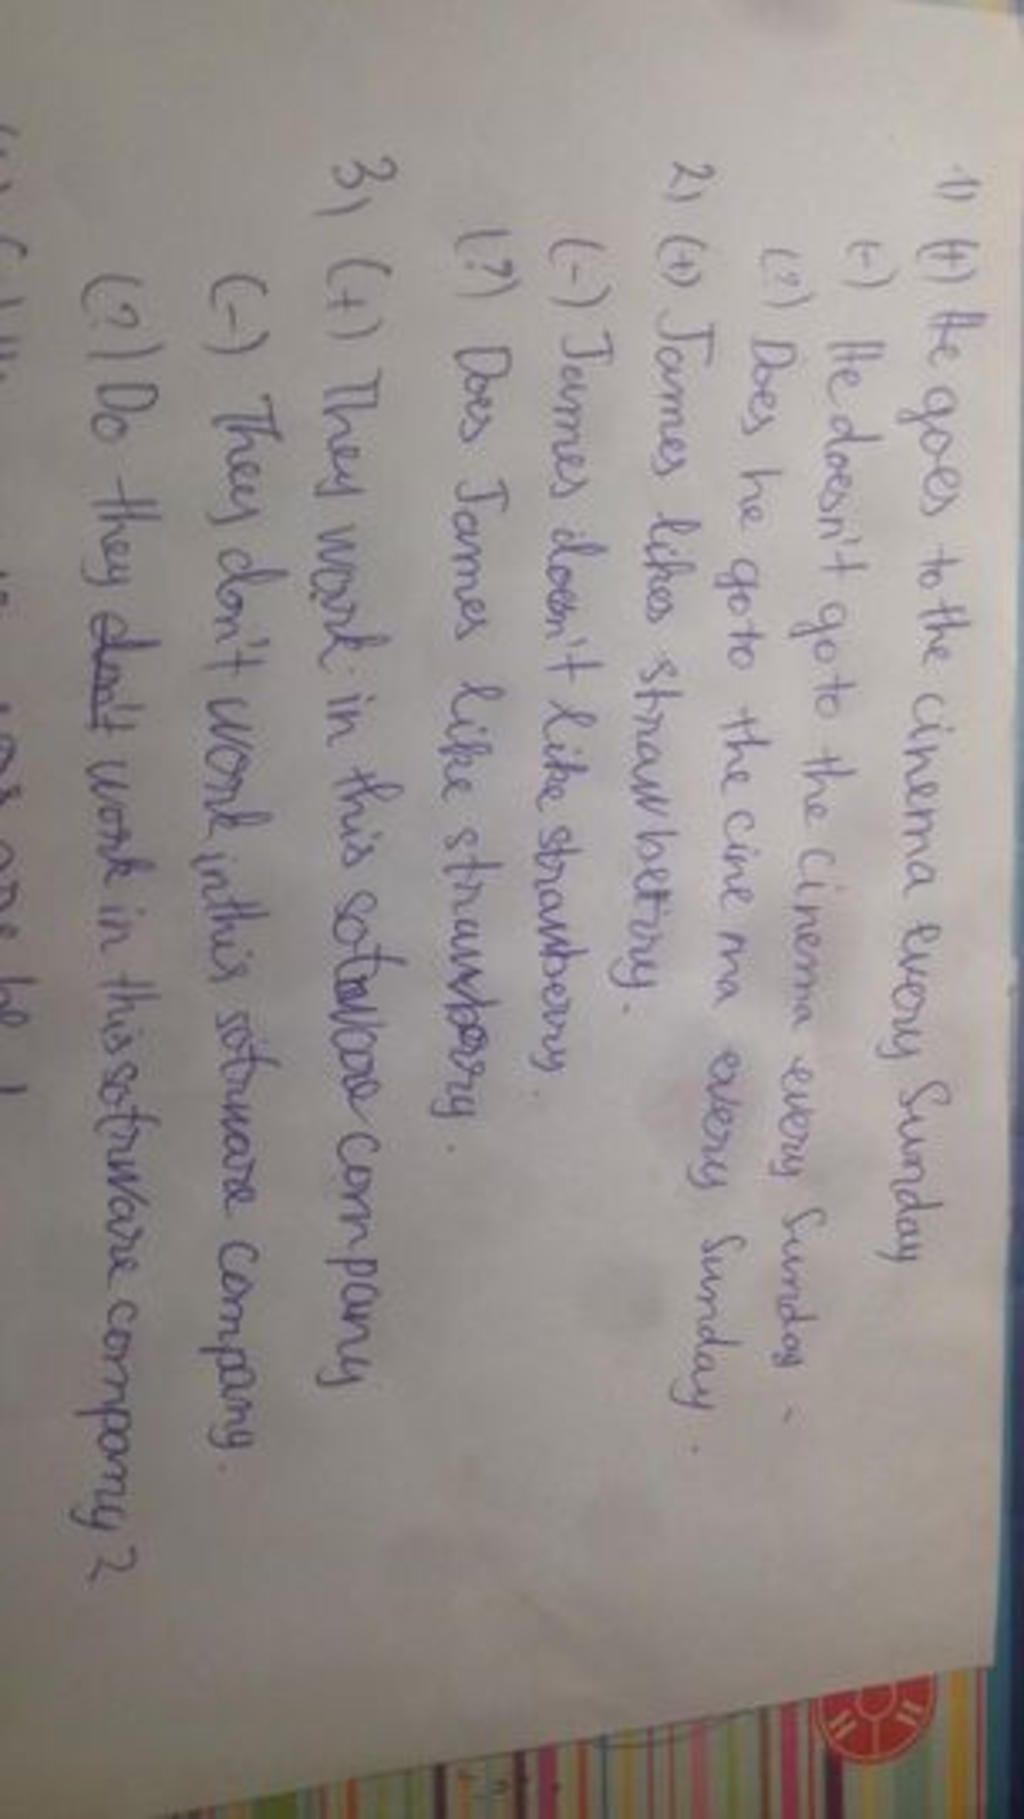 1) (+) He goes to the cinema every Sunday
(-) He doesn't go to the cinema every Sunday.
(?) Does he go to the cinema every Sunday.
2) (+) James likes strawberry.
(-) James doesn't like strawberry.
(?) Does James like strawberry.
3) (+) They work in this sotware company
(-) They don't work in this sotware company.
(?) Do they don't work in this sotrware company?